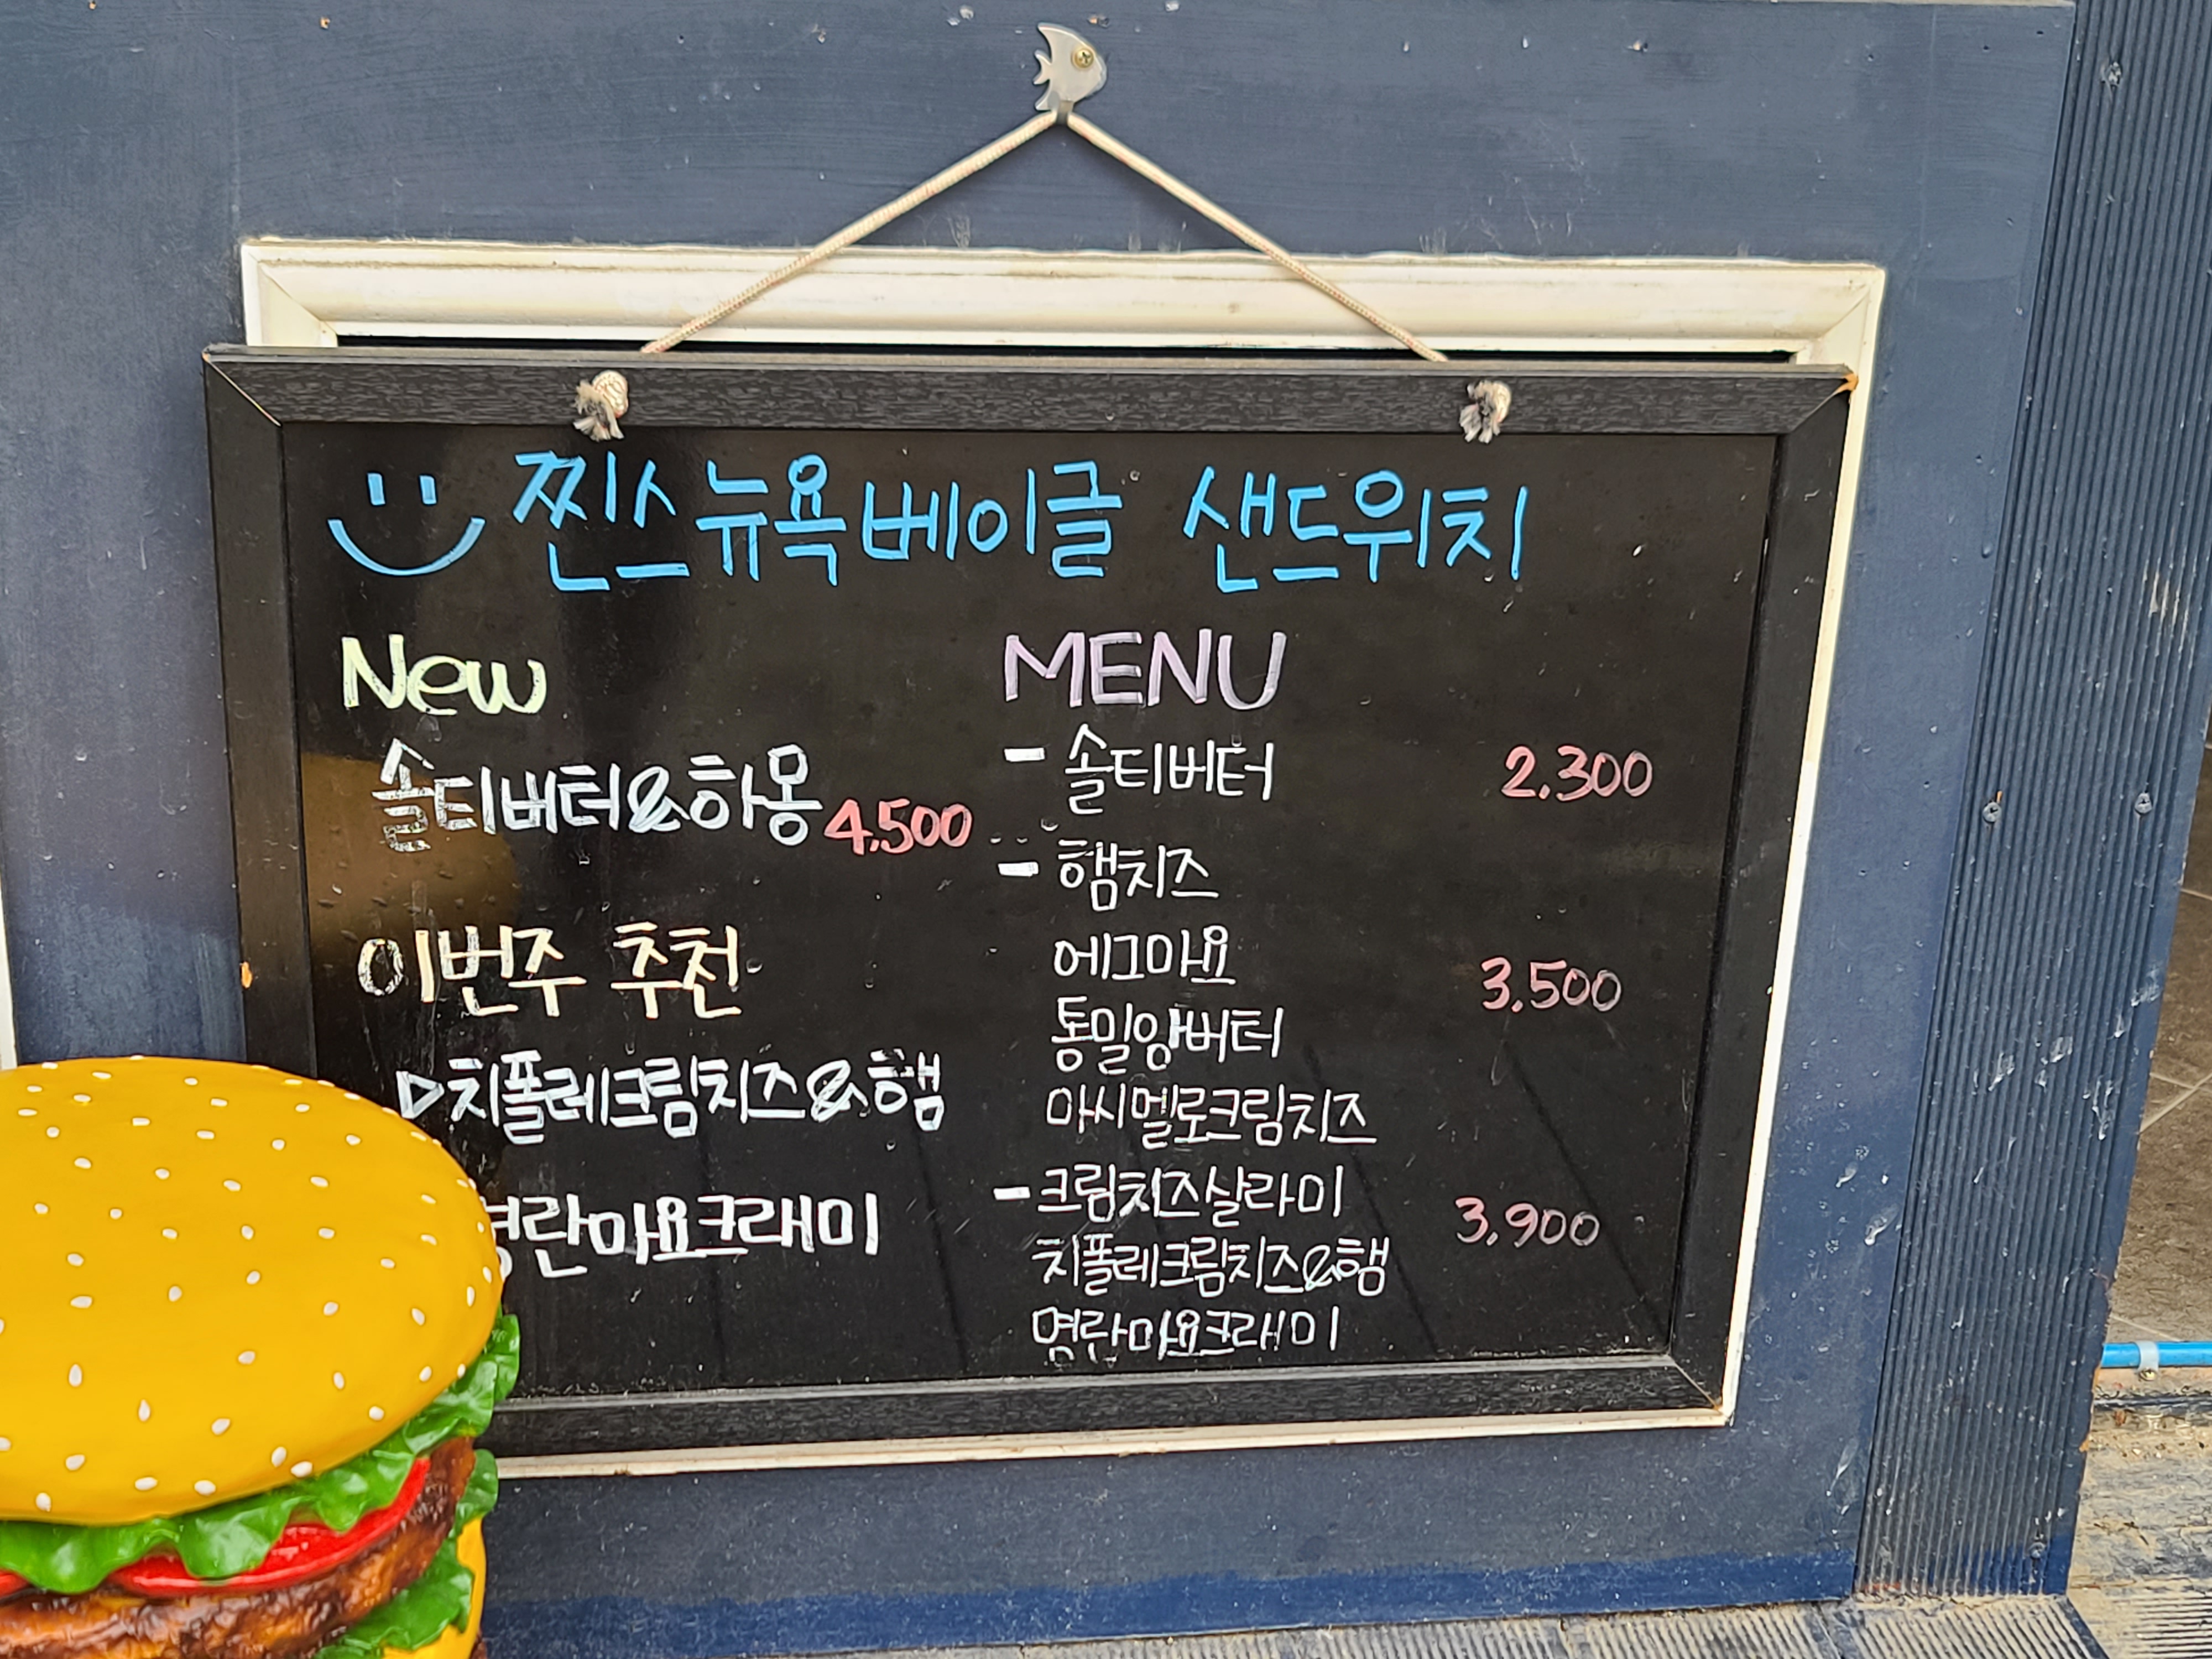 찐스뉴욕베이글 샌드위치
New
솔티버터&하몽 4.500
이번주 추천
▷치폴레크림치즈&햄
명란마요크래미
MENU
- 솔티버터 2.300
- 햄치즈
에그마요 3.500
통밀앙버터
마시멜로크림치즈
- 크림치즈살라미 3,900
치폴레크림치즈&햄
명란마요크래미